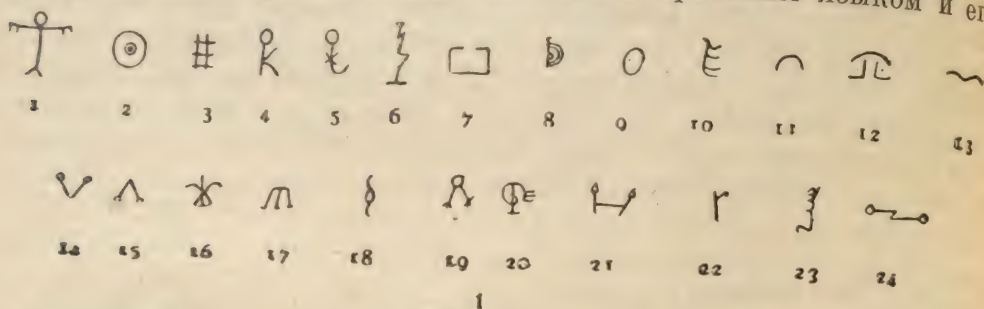 и
1 2 3 4 5 6 7 8 9 10 11 12 13
14 15 16 17 18 19 20 21 22 23 24
1